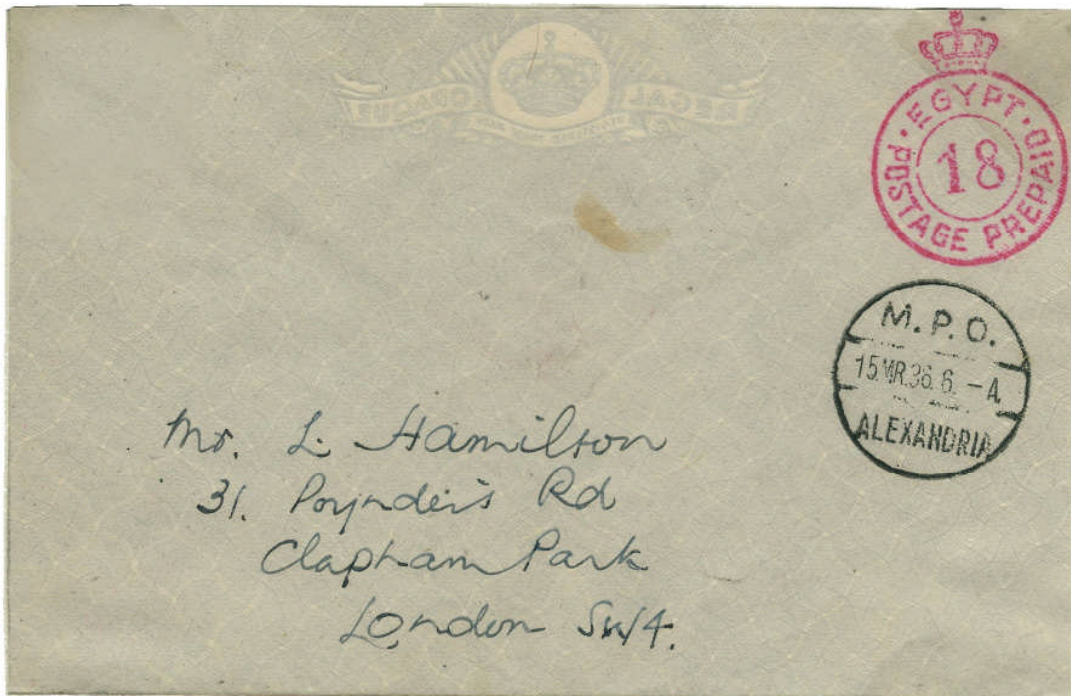 EGYPT
18
POSTAGE PREPAID
M.P.O.
15.MR.36.6.-A.
ALEXANDRIA
Mr. L. Hamilton
31. Poynders Rd
Clapham Park
London SW4.